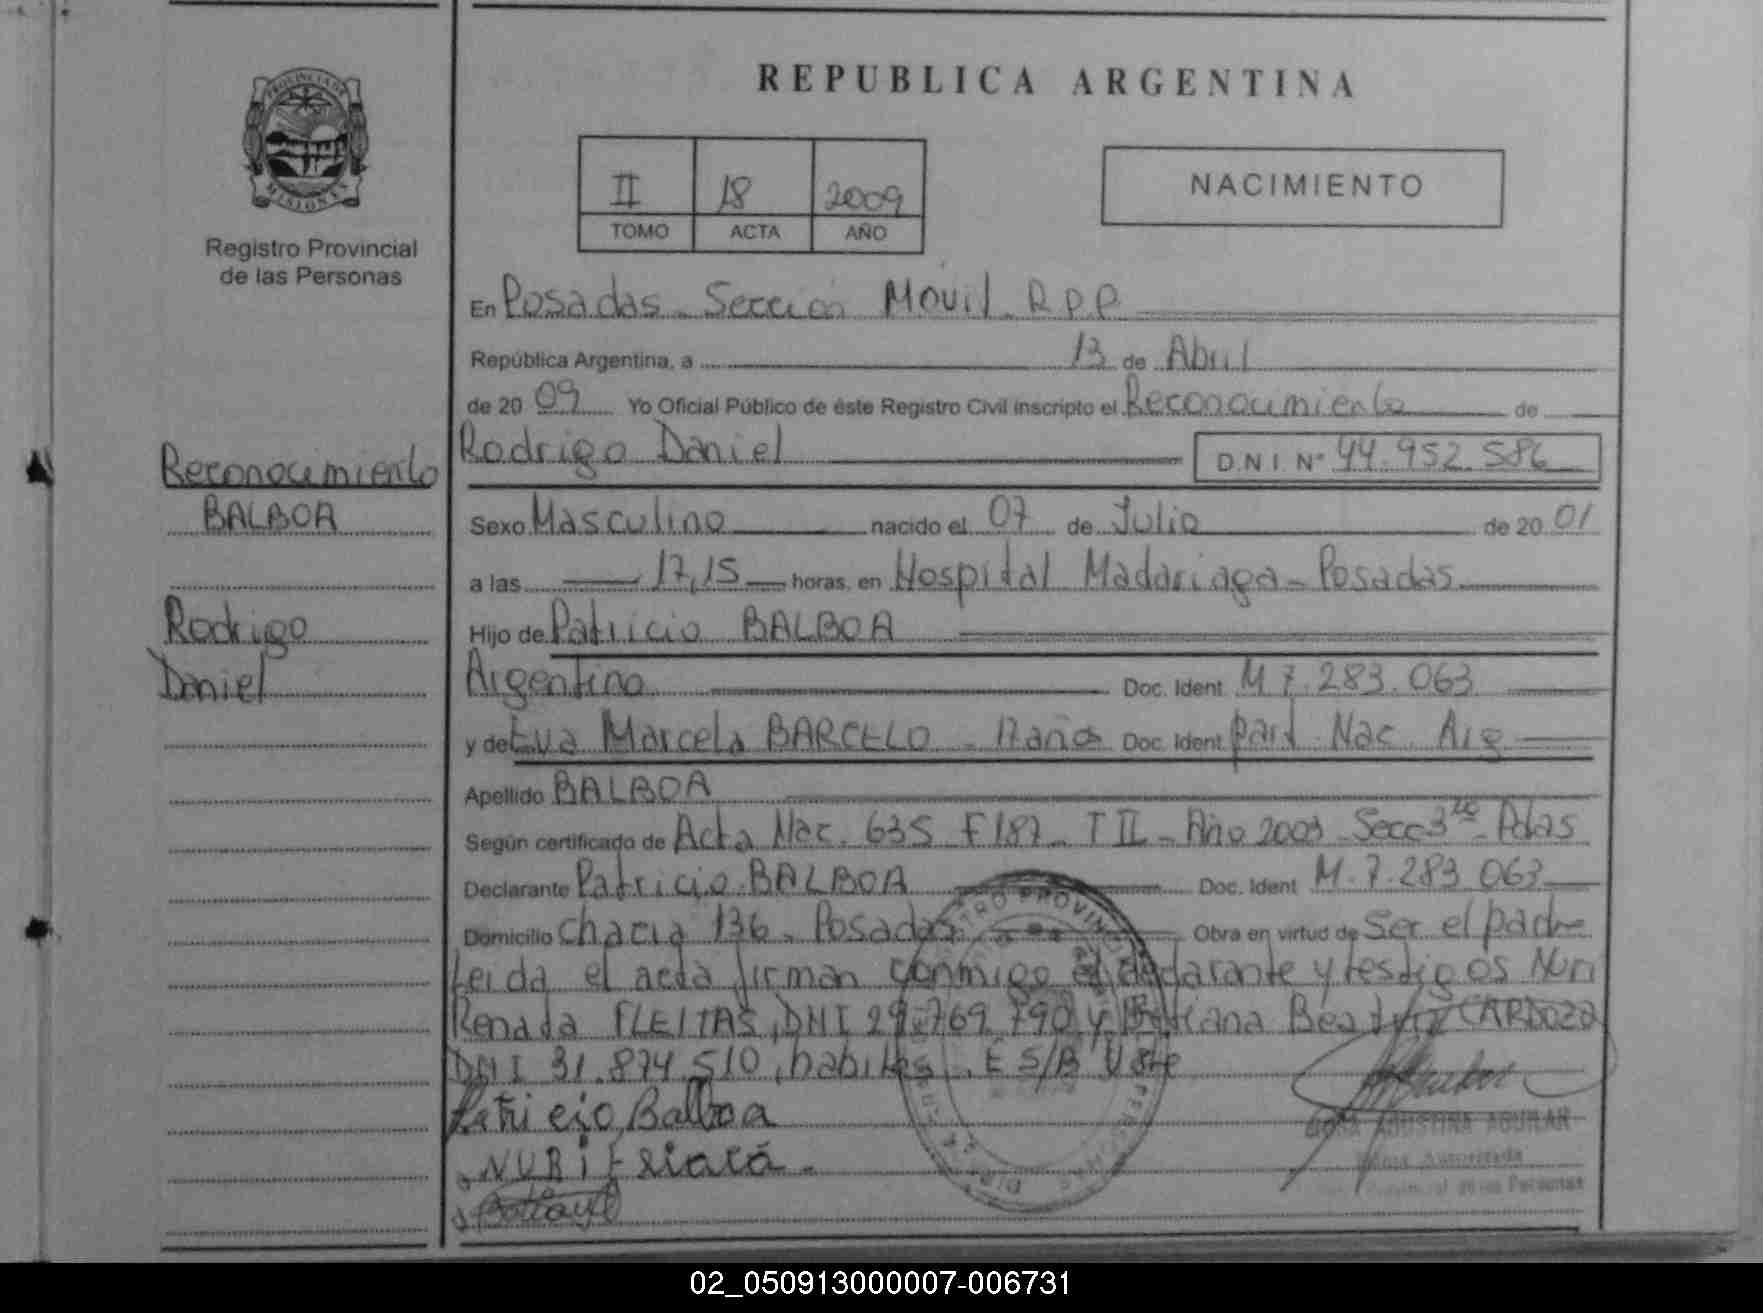 REPUBLICA ARGENTINA
PROVINCIA DE
MISIONES
Registro Provincial
de las Personas
II 18 2009
TOMO ACTA AÑO
NACIMIENTO
En Posadas - Sección Movil R.P.P.
República Argentina, a 13 de Abril
de 20 09 Yo Oficial Público de éste Registro Civil inscripto el Reconocimiento de
Rodrigo Daniel D.N.I. Nº 44.952.586
Reconocimiento
BALBOA
Rodrigo
Daniel
Sexo Masculino nacido el 07 de Julio de 20 01
a las 17,15 horas, en Hospital Madariaga - Posadas
Hijo de Patricio BALBOA
Argentino Doc. Ident M 7.283.063
y de Eva Marcela BARCELO - 17 años Doc. Ident part. Nac. Arg
Apellido BALBOA
Según certificado de Acta Nac. 635 F 187 - T II - Año 2003 - Secc 3ra - Pdas
Declarante Patricio BALBOA Doc. Ident M.7.283.063
Domicilio Chacra 136 - Posadas Obra en virtud de Ser el padre
Leida el acta firman conmigo el declarante y testigos Nuri
Renada FLEITAS, DNI 29.769.790 y Beatriz CARDOZO
DNI 31.874.510, habiles. E S/B
Patricio Balboa
NURI
ROSA AGUSTINA AGUILAR
Firma Autorizada
Provincial de las Personas
02_050913000007-006731